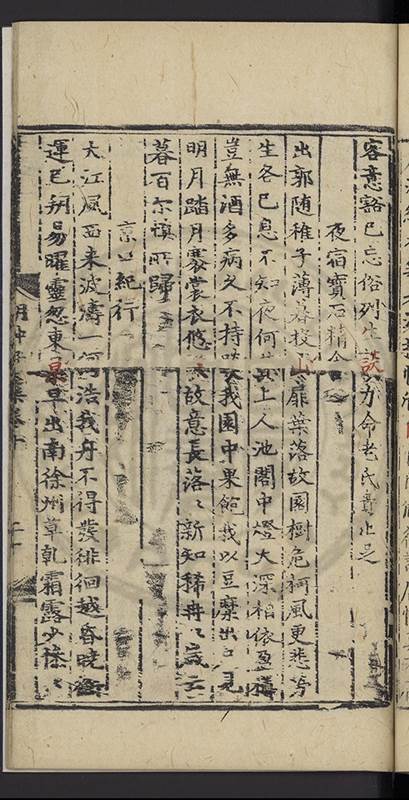 客意豁已忘俗列生談力命老氏尋止足
夜宿寶石精舍
出郭随稚子薄暮投山扉葉落故園樹危柯風更悲勞
生各已息不知夜何其上人池閣中燈火深相依盈樽
豈無酒多病久不持我園中果飽我以豆糜出戶見
明月踏月褰裳衣悠故意長落〻新知稀冉〻歲云
暮百尓慎所歸
京口紀行
大江風西来波濤一何浩我舟不得發徘徊越昏曉
運已朔易曜靈忽東杲旱出南徐州草乾霜露少條〻